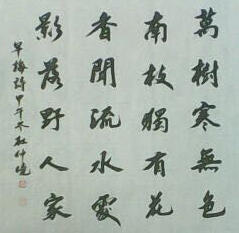 萬樹寒無色
南枝獨有花
香聞流水處
影落野人家
早梅詩甲午冬